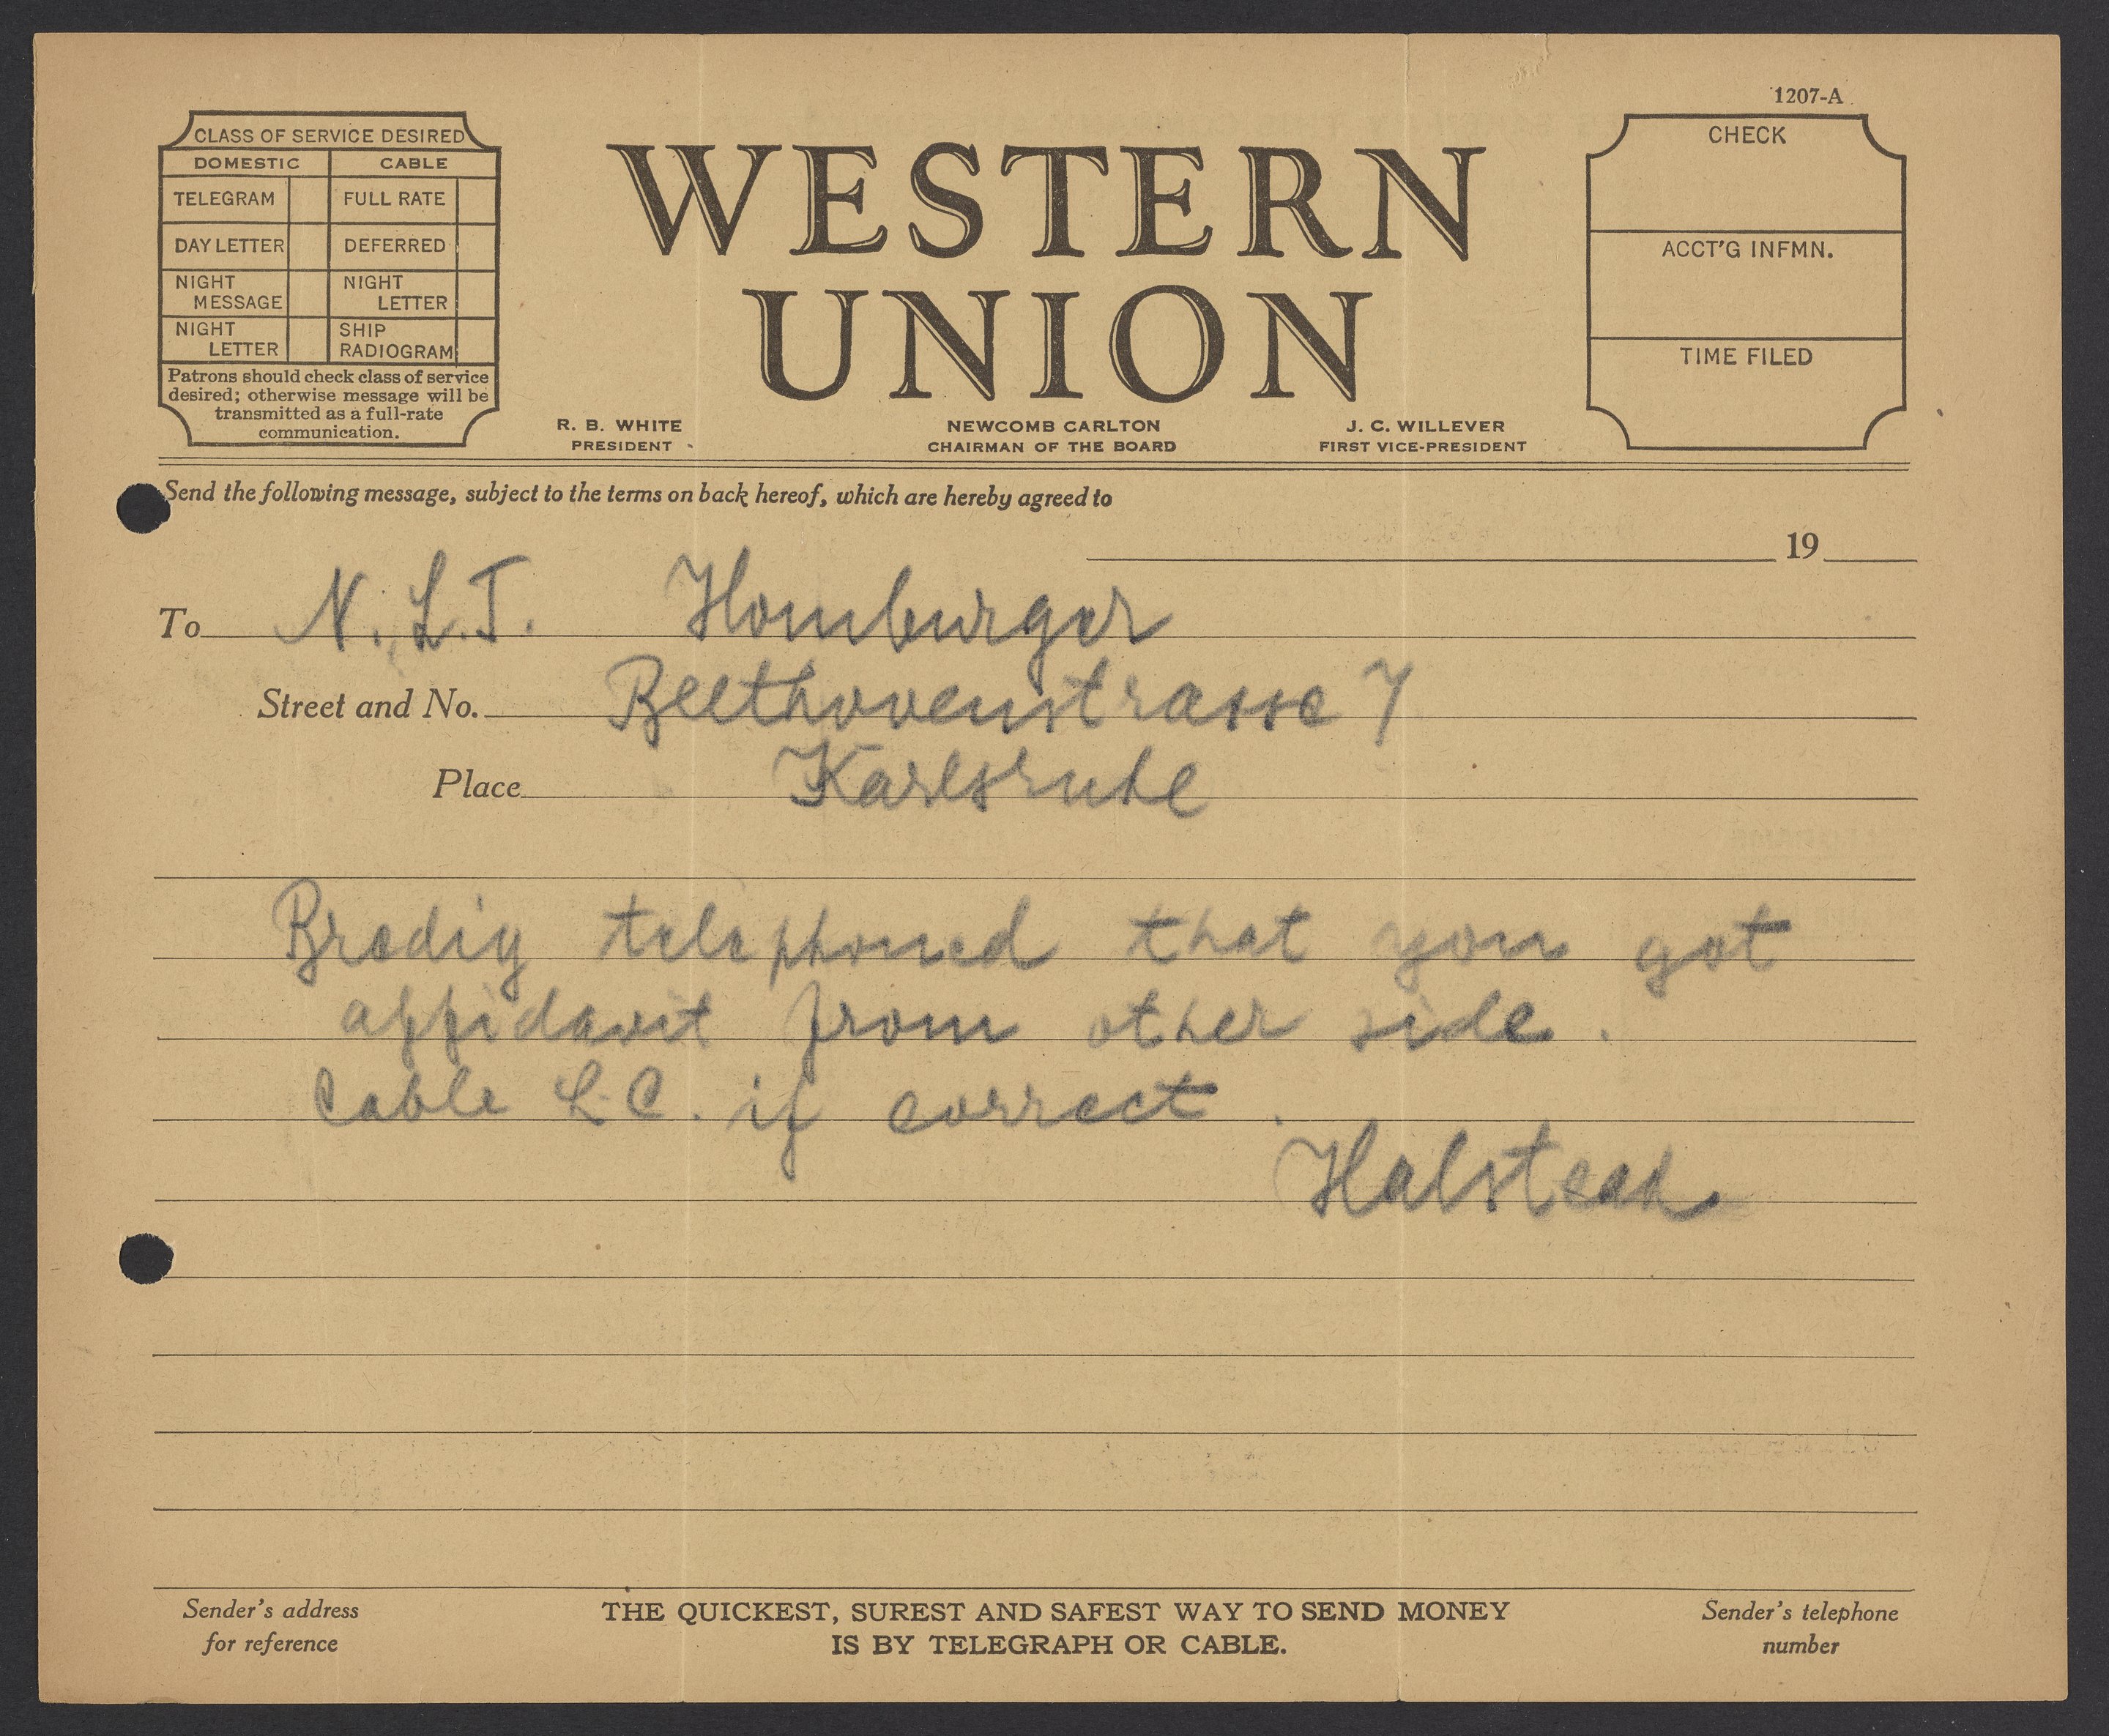 1207-A
CLASS OF SERVICE DESIRED
DOMESTIC CABLE
TELEGRAM FULL RATE
DAY LETTER DEFERRED
NIGHT MESSAGE NIGHT LETTER
NIGHT LETTER SHIP RADIOGRAM
Patrons should check class of service
desired; otherwise message will be
transmitted as a full-rate
communication.
WESTERN
UNION
R. B. WHITE
PRESIDENT
NEWCOMB CARLTON
CHAIRMAN OF THE BOARD
J. C. WILLEVER
FIRST VICE-PRESIDENT
CHECK
ACCT'G INFMN.
TIME FILED
Send the following message, subject to the terms on back hereof, which are hereby agreed to
19
To N. L.T. Homburger
Street and No. Beethovenstrasse 7
Place Karlsruhe
telephoned that you got
affidavit from other side.
Cable L.C. if correct.
Halstead
Sender's address
for reference
THE QUICKEST, SUREST AND SAFEST WAY TO SEND MONEY
IS BY TELEGRAPH OR CABLE.
Sender's telephone
number